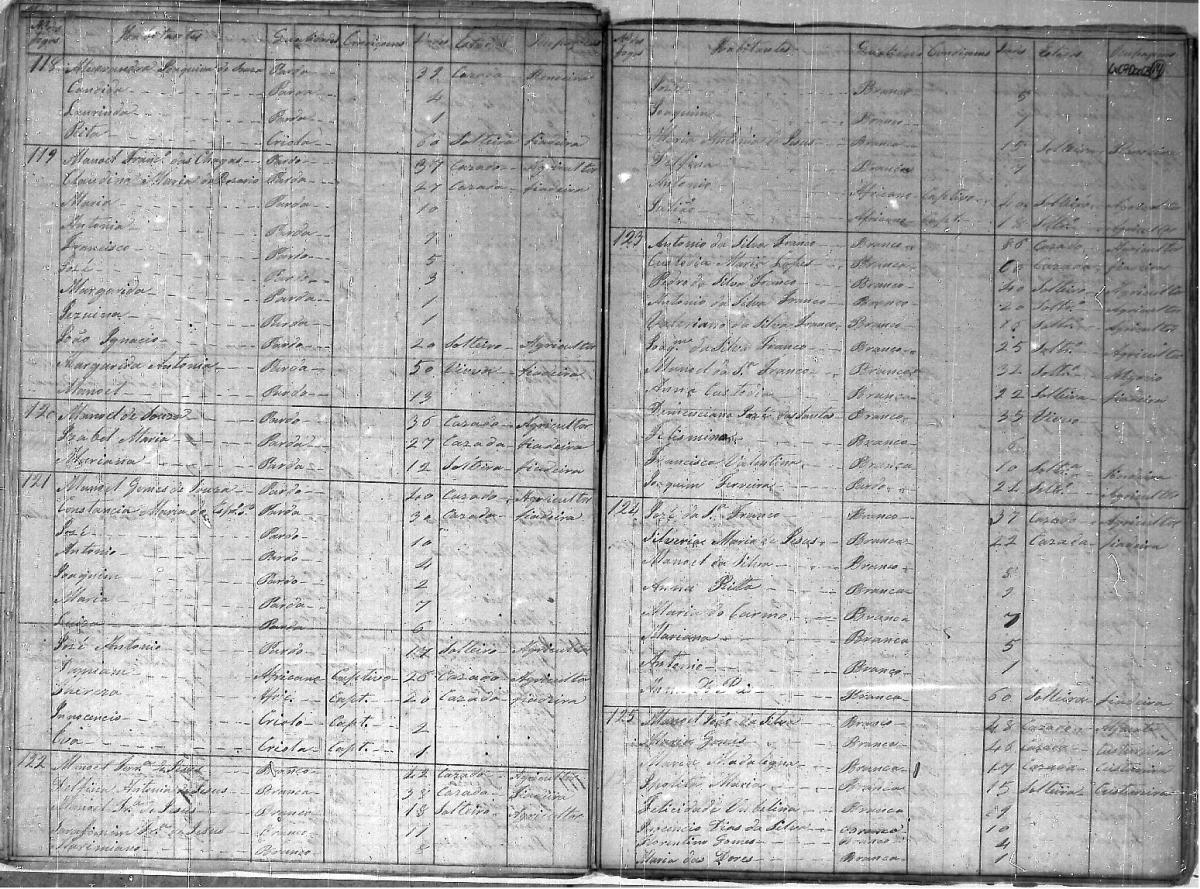 Fogos Habitantes Qualidades Condiçoens Idades Estados Occupaçoens
118 Joaquina de Souza Parda 39 Cazada Rendeira
Candida Parda 4
Laurinda Parda 1
Rita Criola 60 Solteira fiadeira
119 Manoel Franc.º das Chagas Pardo 37 Cazado Agricultor
Claudina Maria do Rozario Parda 27 Cazada fiadeira
Maria Parda 10
Antonia Parda 7
Francisco Pardo 5
José Pardo 3
Margarida Parda 1
Parda 1
João Ignacio Pardo 20 Solteiro Agricultor
Margarida Antonia Parda 50 Viuva fiadeira
Manoel Pardo 13
120 Manoel de Souza Pardo 36 Cazado Agricultor
Izabel Maria Parda 27 Cazada fiadeira
Marianna Parda 12 Solteira fiadeira
121 Manoel Gomes de Souza Pardo 40 Cazado Agricultor
Constancia Maria do Parda 30 Cazada fiadeira
José Pardo 10
Antonio Pardo 4
Joaquim Pardo 2
Maria Parda 7
Luiza Parda 6
José Antonio Pardo 17 Solteiro Agricultor
Africano Captivo 26 Cazado Agricultor
Capt. 20 Cazada fiadeira
Innocencio Criolo Capt. 2
Eva Criola Capt. 1
122 Manoel de Jesus Branco 42 Cazado Agricultor
Delfina Antonia de Jesus Branca 38 Cazada fiadeira
Manoel Jesus Branco 18 Solteiro Agricultor
de Jesus Branco 11
Maximiano Branco 8
Fogos Habitantes Qualidades Condiçoens Idades Estados Occupaçoens
José Branco 5
Joaquim Branco
Maria Antonia de Jesus Branca 15 Solteira
Delfina Branca
Antonio Africano Captivo 40 Solteiro Agricultor
Julião Africano Capt. 18 Solt.º Agricultor
123 Antonio da Silva Franco Branco 86 Cazado Agricultor
Custodia Maria Lopes Branca Cazada fiadeira
Pedro da Silva Franco Branco 40 Solteiro Agricultor
Antonio da Silva Franco Branco 20 Solt.º Agricultor
Valeriano da Silva Franco Branco Solt.º Agricultor
Joaq.m da Silva Franco Branco 25 Solt.º Agricultor
Manoel da S.ª Franco Branco 32 Solt.º
Anna Custodia Branca 22 Solteira fiadeira
José dos Santos Branco 33 Viuvo
Felismina Branca 6
Francisca Valentina Branca 10 Solt.ª
Joaquim Ferreira Pardo 22 Solt.º Agricultor
124 José da S.ª Franco Branco 37 Cazado Agricultor
Silveria Maria de Jesus Branca 22 Cazada fiadeira
Manoel da Silva Branco 8
Anna Ritta Branca 9
Maria do Carmo Branca 7
Marianna Branca 5
Antonio Branco 1
Branca 60 Solteira fiadeira
125 Manoel José da Silva Branco 48 Cazado
Maria Gomes Branca 46 Cazada Costureira
Maria Madalena Branca 17 Cazada Costureira
Maria Branca 15 Solteira Costureira
Felicidade Umbelina Branca
Dias da Silva Branco 10
Florentino Gomes Branco 4
Maria das Dores Branca 1